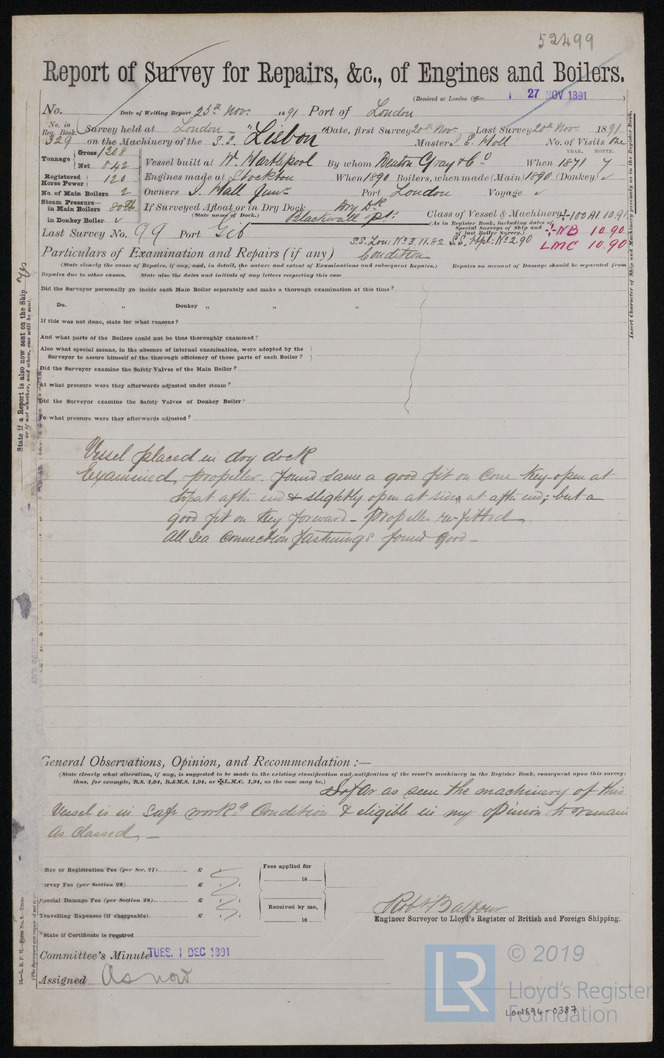 52499
Report of Survey for Repairs, &c., of Engines and Boilers.
(Received at London Office 27 NOV 1891)
No. Date of Writing Report 25th Nov. 1891 Port of London
No. in Reg. Book. 329 Survey held at London Date, first Survey 20th Nov. Last Survey 20th Nov. 1891
on the Machinery of the S.S. "Lisbon" Master No. of Visits One
Tonnage Gross 1208 Net 842
Vessel built at W. Hartlepool By whom Denton Gray & Co When 1871 7
YEAR. MONTH.
Registered Horse Power 120 Engines made at Stockton When 1890 Boilers, when made (Main) 1890 (Donkey) ✓
No. of Main Boilers 2 Owners J. Hall Junr Port London Voyage ✓
Steam Pressure in Main Boilers in Donkey Boiler ✓
If Surveyed Afloat or in Dry Dock Dry Dk
(State name of Dock.) Blackwall Pt.
Class of Vessel & Machinery 100 A1 10.91
(As in Register Book, including dates of Special Surveys of Ship and of last Boiler Survey.)
NB 10.90
LMC 10.90
Last Survey No. 99 Port S.S. Lon: No 3, 11.82 S.S. No 2.90
Particulars of Examination and Repairs (if any) Condition
(State clearly the cause of Repairs, if any, and, in detail, the nature and extent of Examinations and subsequent Repairs.) Repairs on account of Damage should be separated from
Repairs due to other causes. State also the dates and initials of any letters respecting this case
Did the Surveyor personally go inside each Main Boiler separately and make a thorough examination at this time?
Do. " Donkey " " "
If this was not done, state for what reasons?
And what parts of the Boilers could not be thus thoroughly examined?
Also what special means, in the absence of internal examination, were adopted by the
Surveyor to assure himself of the thorough efficiency of those parts of each Boiler?
Did the Surveyor examine the Safety Valves of the Main Boiler?
At what pressure were they afterwards adjusted under steam?
Did the Surveyor examine the Safety Valves of Donkey Boiler?
To what pressure were they afterwards adjusted?
Vessel placed in dry dock
Examined propeller. found same a good fit on Cone Key open at
top at aft end & slightly open at sides at aft end; but a
good fit on Key forward - Propeller re-fitted
All Sea Connection fastenings found good -
General Observations, Opinion, and Recommendation :—
(State clearly what alteration, if any, is suggested to be made in the existing classification and notification of the vessel's machinery in the Register Book, consequent upon this survey;
thus, for example, B.S. 1,91, B.&M.S. 1,91, or L.M.C. 1,91, as the case may be.)
So far as seen the machinery of this
Vessel is in Safe workg Condition & eligible in my opinion to remain
As Classed -
Office or Registration Fee (per Sec. 27) £
Survey Fee (per Section 28) £
Special Damage Fee (per Section 28) £
Travelling Expenses (if chargeable) £
Fees applied for 18
Received by me, 18
State if Certificate is required
Robt Balfour
Engineer Surveyor to Lloyd's Register of British and Foreign Shipping.
Committee's Minute TUES. 1 DEC 1891
Assigned As now
State if a Report is also now sent on the Ship Yes
or if not whether, and when, one will be sent.
Insert Character of Ship and Machinery precisely as in the Register Book.
LR © 2019
Lloyd's Register
Foundation
LON694-0387